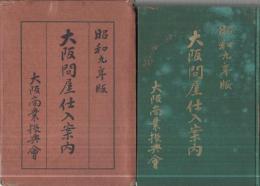 昭和九年版
大阪問屋仕入案内
大阪商業振興會
昭和九年版
大阪問屋仕入案内
大阪商業振興會